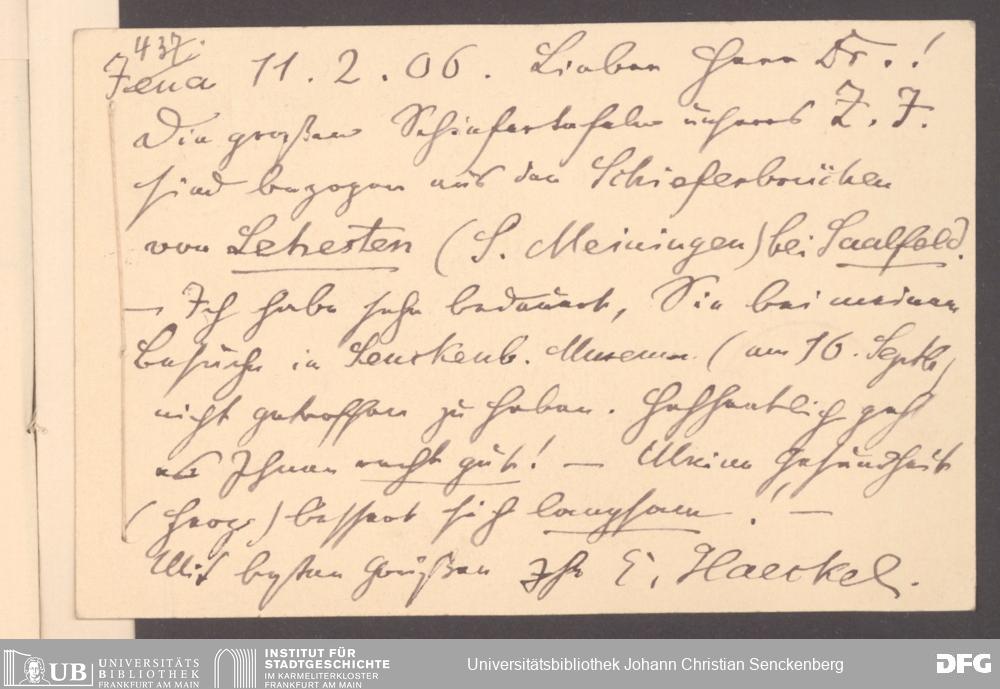 437.
Jena 11. 2. 06. Lieber Herr Dr.!
Die großen Schiefertafeln unseres Z. J.
sind bezogen aus den Schieferbrüchen
von Lehesten (S. Meiningen) bei Saalfeld.
— Ich habe sehr bedauert, Sie bei meinem
Besuche in Senckenb. Museum (am 16. Septb)
nicht getroffen zu haben. Hoffentlich geht
es Ihnen recht gut! — Meine Gesundheit
(Herz) bessert sich langsam! —
Mit besten Grüßen Ihr E. Haeckel.
UB UNIVERSITÄTS
BIBLIOTHEK
FRANKFURT AM MAIN
INSTITUT FÜR
STADTGESCHICHTE
IM KARMELITERKLOSTER
FRANKFURT AM MAIN
Universitätsbibliothek Johann Christian Senckenberg
DFG